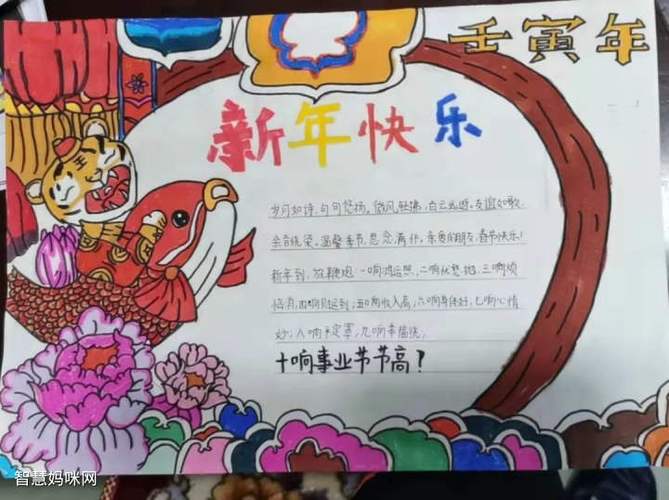 壬寅年
新年快乐
岁月如诗,句句悠扬,微风轻拂,白云幽游,友谊如歌
余音绕梁,温馨季节,思念满怀,亲爱的朋友,春节快乐!
新年到,放鞭炮:一响鸿运照,二响忧愁抛,三响烦
恼消,四响财运到,五响收入高,六响身体好,七响心情
妙,八响平安罩,九响幸福绕,
十响事业节节高?
智慧妈咪网